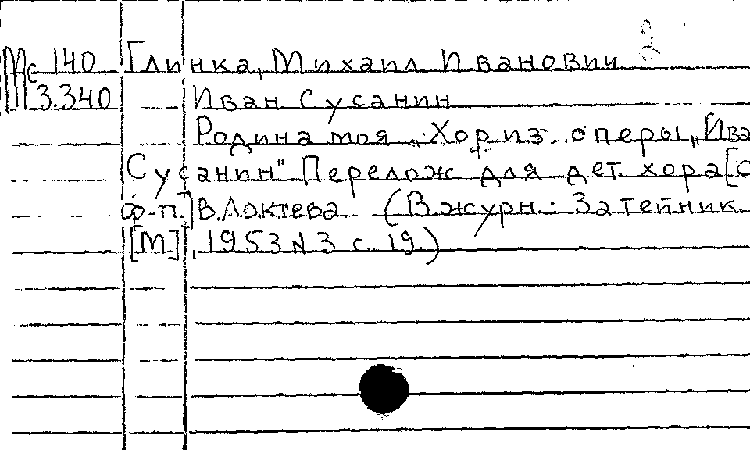 Мс 140 Глинка, Михаил Иванович 2
М 3.340 Иван Сусанин
Родина моя. Хор из оперы „Ива
Сусанин" Перелож для дет. хора [с
ф-п.] В. Локтева (В журн.: Затейник
[М], 1953 N 3 с. 19.)